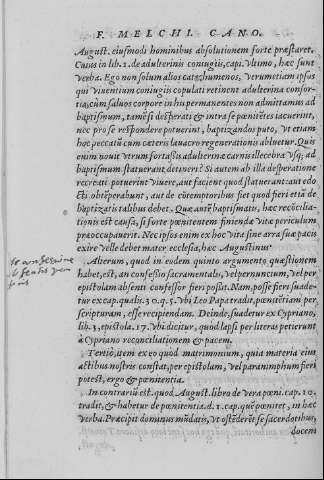 F. MELCHI. CANO.
August. eiusmodi hominibus absolutionem forte præstaret.
Cuius in lib. 2. de adulterinis coniugiis, capi. vltimo, hæc sunt
verba. Ego non solum alios catechumenos, verum etiam ipsos
qui viuentium coniugiis copulati retinent adulterina consor-
tia, cùm saluos corpore in his permanentes non admittamus ad
baptismum, tamē si desperati & intra se pœnitētes iacuerint,
nec pro se respondere potuerint, baptizandos puto, vt etiam
hoc peccatū cum cæteris lauacro regenerationis abluetur. Quis
enim nouit vtrum fortaßis adulterinæ carnis illecebra vsq; ad
baptismum statuerant detineri? Si autem ab illa desperatione
recreati potuerint viuere, aut facient quod statuerant: aut edo
cti obtēperabunt, aut de cōtemptoribus fiet quod fieri etiā de
baptizatis talibus debet. Quæ autē baptismati, hæc recōcilia-
tionis est causa, si forte pœnitentem finiendæ vitæ periculum
præoccupauerit. Nec ipsos enim ex hoc vita sine arra suæ pacis
exire velle debet mater ecclesia, hæc Augustinus.
Alterum, quod in eodem quinto argumento quæstionem
habet, est, an confeßio sacramentalis, vel per nuncium, vel per
epistolam absenti confessor fieri poßit. Nam posse fieri suade-
tur ex cap. qualis. 30. q. 5. vbi Leo Papa tradit, pœnitētiam per
scripturam, esse recipiendam. Deinde, suadetur ex Cypriano,
lib. 3, epistola. 17. vbi dicitur, quod lapsi per literas petierunt
à Cypriano reconciliationem & pacem.
Tertiò, item ex eo quod matrimonium, quia materia eius
actibus nostris constat, per epistolam, vel paranimphum fieri
potest, ergo & pœnitentia.
In contrariū est. quod August. libro de vera pœni. cap. 10.
tradit, & habetur de pœnitentia. d. 1. cap. quē pœnitet, in hæc
verba. Præcipit dominus mūdatis, vt ostēderēt se sacerdotibus,
docens